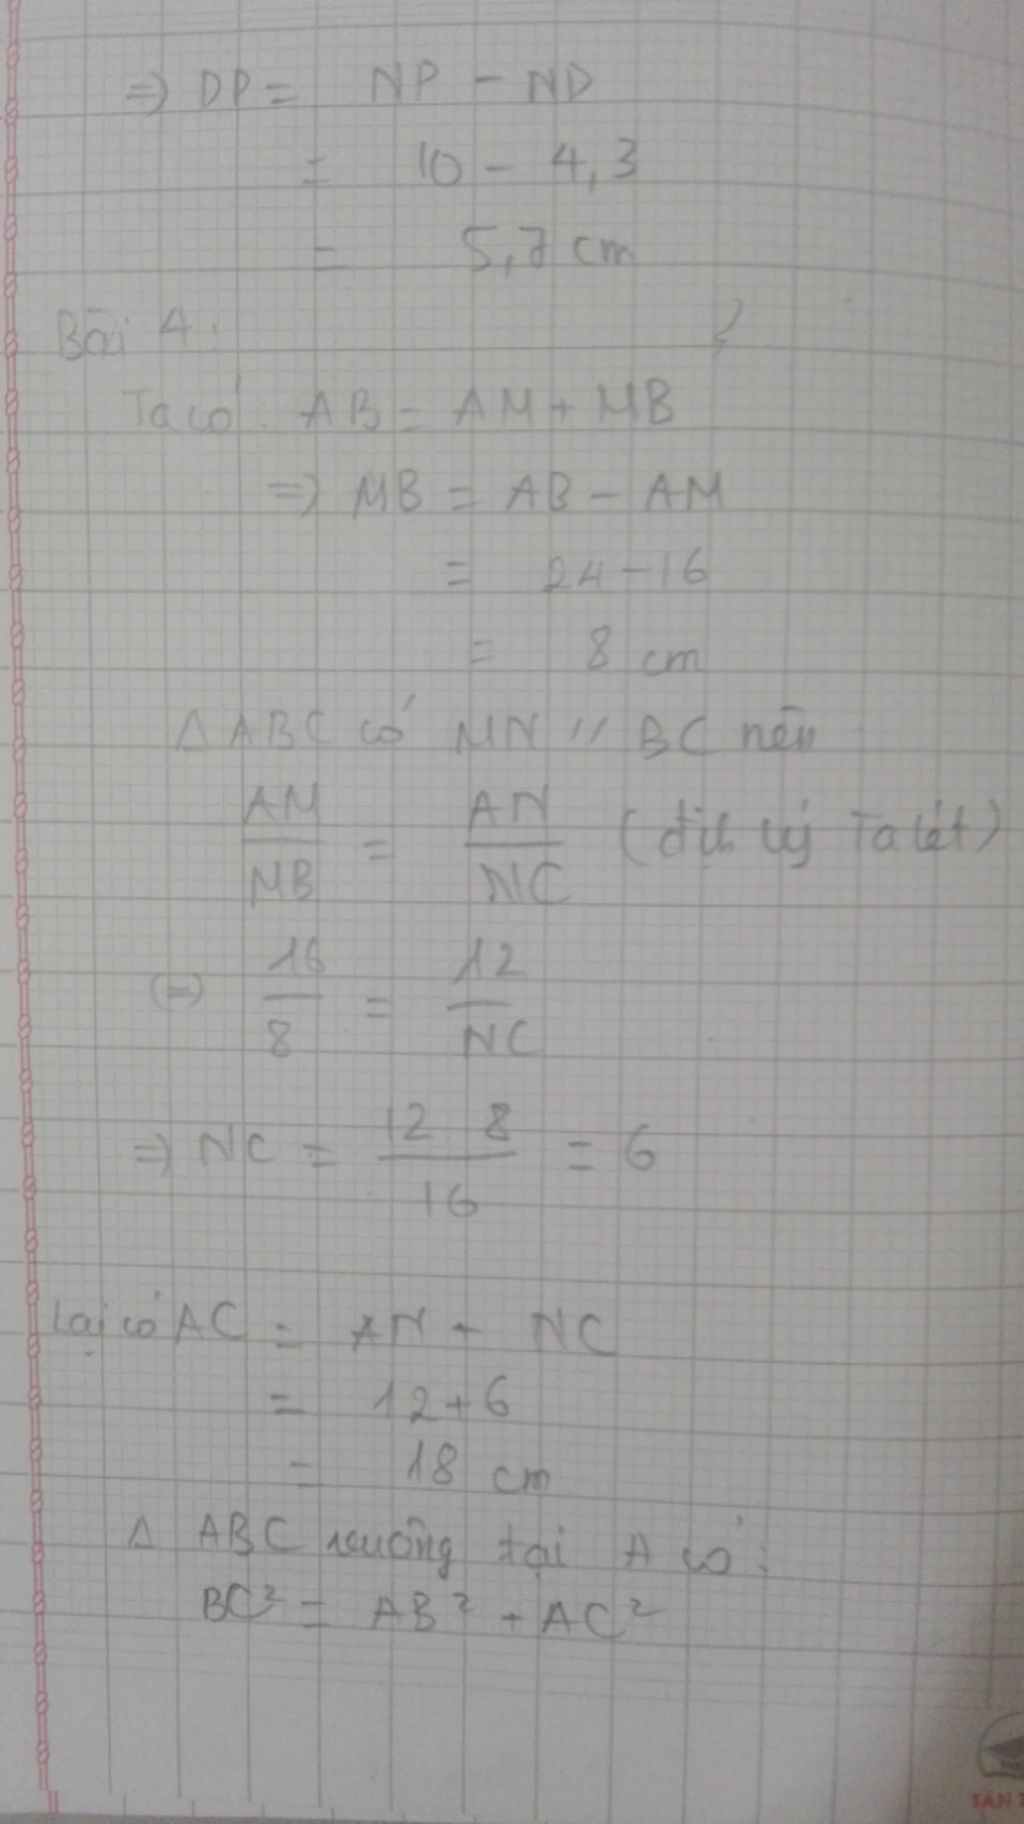 => DP = NP - ND
= 10 - 4,3
= 5,7 cm
Bài 4:
Ta có: AB = AM + MB
=> MB = AB - AM
= 24 - 16
= 8 cm
Δ ABC có MN // BC nên
AM/MB = AN/NC (định lý Ta lét)
(=) 16/8 = 12/NC
=> NC = 12 . 8/16 = 6
Lại có AC = AN + NC
= 12 + 6
= 18 cm
Δ ABC vuông tại A có:
BC² = AB² + AC²
TÂN